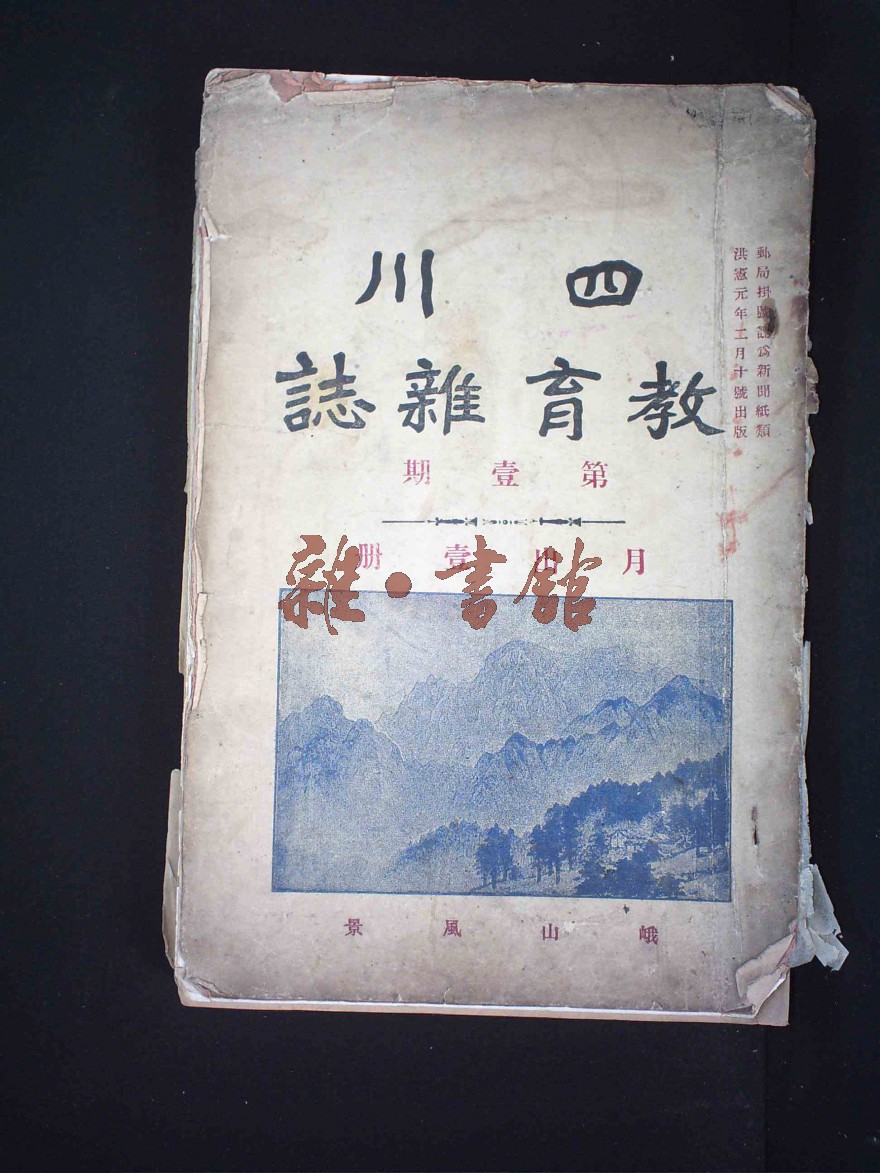 郵局掛號認爲新聞紙類
洪憲元年二月十號出版
四川
教育雜誌
第壹期
月出壹册
雜·書館
峨山風景